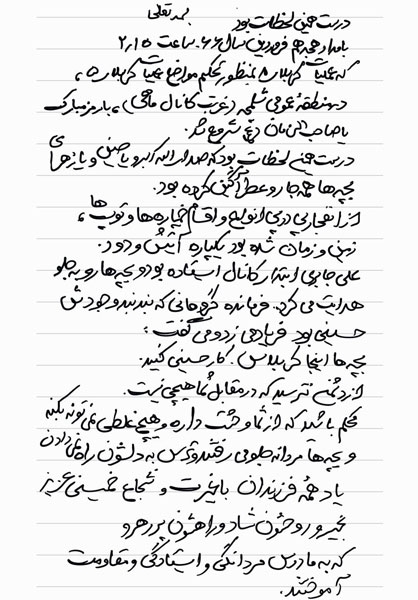 بسمه تعالی
درست همین لحظات بود
بامداد هجدهم فروردین سال ۶۶، ساعت ۲٫۱۵
که عملیات کربلای ۸ بمنظور تحکیم مواضع عملیات کربلای ۵،
در منطقهٔ عمومی شلمچه (غرب کانال ماهی)، با رمز مبارک
یا صاحب الزمان (عج) شروع شد.
درست همین لحظات بود که صدای الله اکبر و یا حسین و یا زهرای
بچه‌ها همه جا رو عطرآگین کرده بود.
از انفجار پی در پی انواع و اقسام خمپاره‌ها و توپ‌ها،
زمین و زمان شده بود یکپاره آتیش و دود.
علی جابری ابتدای کانال ایستاده بود و بچه‌ها رو به جلو
هدایت می کرد. فرمانده گروهانی که بند بند وجودش
حسینی بود فریاد می زد و می گفت:
بچه‌ها اینجا کربلاس. کار حسینی کنید.
از دشمن نترسید که در مقابل شما هیچی نیست.
محکم باشید که از شما وحشت داره و هیچ غلطی نمی تونه بکنه
و بچه‌ها مردانه جلو می رفتند و ترس به دلشون راه نمی دادن
یاد همهٔ فرزندان باغیرت و شجاع خمینی عزیز
بخیر و روحشون شاد و راهشون پر رهرو
که به ما درس مردانگی و ایستادگی و مقاومت
آموختند.